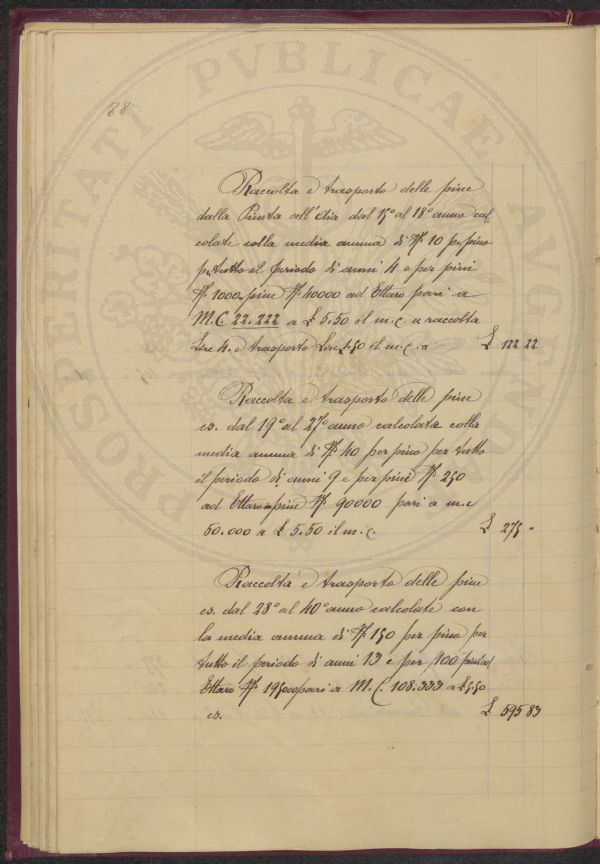 88
PROSPERITATI PVBLICAE AVGENDAE
Raccolta e trasporto delle pine
dalla Pineta all'Aia dal 15° al 18° anno cal
colate colla media annua di N° 10 p. pino
p. tutto il periodo di anni 4 e per pini
N° 1000 pine N° 40000 ad Ettaro pari a
M.C 22.222 a £ 5.50 il m.c. raccolta
Lire 4. e trasporto Lire 1.50 il m.c. £ 122 22
Raccolta e trasporto delle pine
cs. dal 19° al 27° anno calcolata colla
media annua di N° 40 per pino per tutto
il periodo di anni 9 e per pini N° 250
ad Ettaro pine N° 90000 pari a m.c
50.000 a £ 5.50 il m.c. £ 275 "
Raccolta e trasporto delle pine
cs. dal 28° al 40° anno calcolate con
la media annua di N° 150 per pino per
tutto il periodo di anni 13 e per 100 pini ad
Ettaro N° 195000 pari a M.C. 108.333 a £ 5.50
cs. £ 595 83